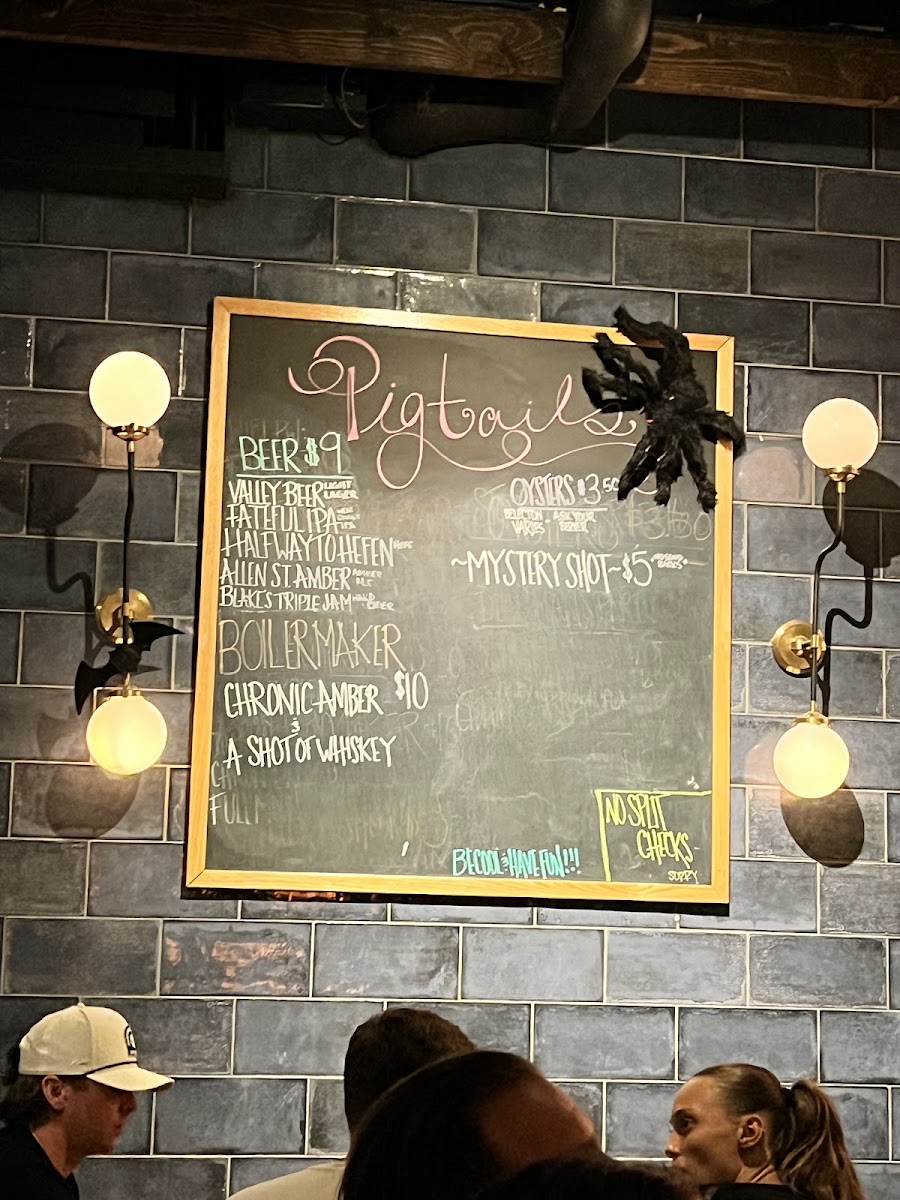 Pigtails
BEER $9
VALLEY BEER LIGHT LAGER
FATEFUL IPA
HALFWAY TO HEFEN HEFE
ALLEN ST. AMBER AMBER ALE
BLAKES TRIPLE JAM HARD CIDER
BOILERMAKER
CHRONIC AMBER $10
&
A SHOT OF WHISKEY
OYSTERS $3.50
SELECTION VARIES ASK YOUR
~MYSTERY SHOT~$5
BE COOL & HAVE FUN!!!
NO SPLIT
CHECKS
SORRY